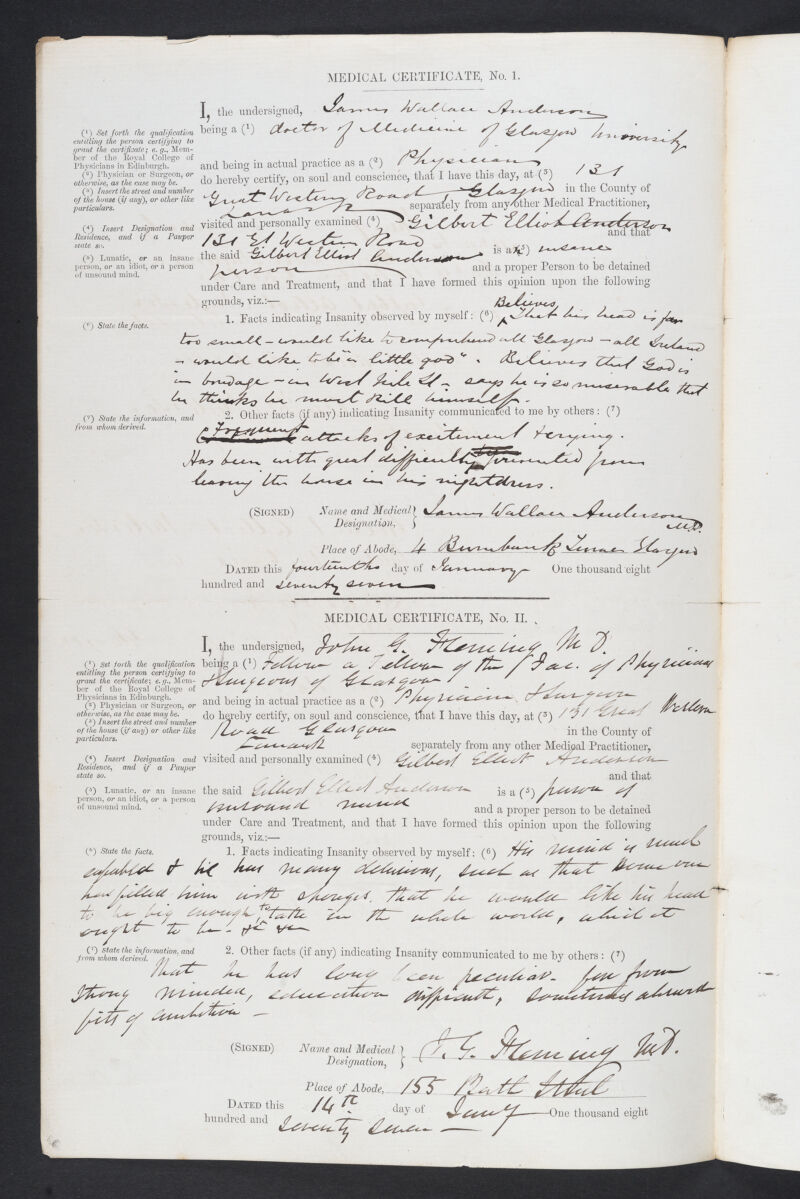 MEDICAL CERTIFICATE, No. I.
I, the undersigned, James Wallace Anderson
being a (1) doctor of Medicine of Glasgow University
(1) Set forth the qualification
entitling the person certifying to
grant the certificate; e. g., Mem-
ber of the Royal College of
Physicians in Edinburgh.
and being in actual practice as a (2) Physician
(2) Physician or Surgeon, or
otherwise, as the case may be.
do hereby certify, on soul and conscience, that I have this day, at (3) 131
(3) Insert the street and number
of the house (if any), or other like
particulars.
Great Western Road, Glasgow in the County of
Lanark separately from any other Medical Practitioner,
visited and personally examined (4) Gilbert Elliot Anderson
(4) Insert Designation and
Residence, and if a Pauper
state so.
131 Gt Western Road and that
the said Gilbert Elliot Anderson is a (5) insane
(5) Lunatic, or an insane
person, or an idiot, or a person
of unsound mind.
person and a proper Person to be detained
under Care and Treatment, and that I have formed this opinion upon the following
grounds, viz.:—
1. Facts indicating Insanity observed by myself: (6) Believes That his head is far
(6) State the facts.
too small – would like to comprehend all Glasgow – all Ireland
– would like to be "a little god". Believes that God is
in bondage – in West Nile St. – says he is so miserable that
he thinks he must kill himself.
2. Other facts (if any) indicating Insanity communicated to me by others: (7)
(7) State the information, and
from whom derived.
Frequent attacks of excitement & crying.
Has been with great difficulty prevented from
leaving the house in his nightdress.
(SIGNED) Name and Medical Designation, James Wallace Anderson M.D.
Place of Abode, 4 Burnbank Terrace Glasgow
DATED this fourteenth day of January One thousand eight
hundred and seventy seven
MEDICAL CERTIFICATE, No. II.
I, the undersigned, John G. Fleming M D.
being a (1) Fellow a Fellow of the Fac. of Physicians
(1) Set forth the qualification
entitling the person certifying to
grant the certificate; e.g., Mem-
ber of the Royal College of
Physicians in Edinburgh.
& Surgeons of Glasgow
and being in actual practice as a (2) Physician & Surgeon
(2) Physician or Surgeon, or
otherwise, as the case may be.
do hereby certify, on soul and conscience, that I have this day, at (3) 131 Great Western
(3) Insert the street and number
of the house (if any) or other like
particulars.
Road Glasgow in the County of
Lanark separately from any other Medical Practitioner,
visited and personally examined (4) Gilbert Elliot Anderson
(4) Insert Designation and
Residence, and if a Pauper
state so.
and that
the said Gilbert Elliot Anderson is a (5) person of
(5) Lunatic, or an insane
person, or an idiot, or a person
of unsound mind.
unsound mind and a proper person to be detained
under Care and Treatment, and that I have formed this opinion upon the following
grounds, viz.:—
1. Facts indicating Insanity observed by myself: (6) His mind is much
(6) State the facts.
enfeebled & he has many delusions, such as that some one
has filled him with sponges, that he would like his head
to be big enough to take in the whole world, which it
ought to be –
2. Other facts (if any) indicating Insanity communicated to me by others: (7)
(7) State the information, and
from whom derived.
That he has long been peculiar. far from
strong minded, education difficult, sometimes absurd
fits of ambition –
(SIGNED) Name and Medical Designation, J. G. Fleming MD.
Place of Abode, 155 Bath Street
DATED this 14th day of Jany One thousand eight
hundred and seventy seven –